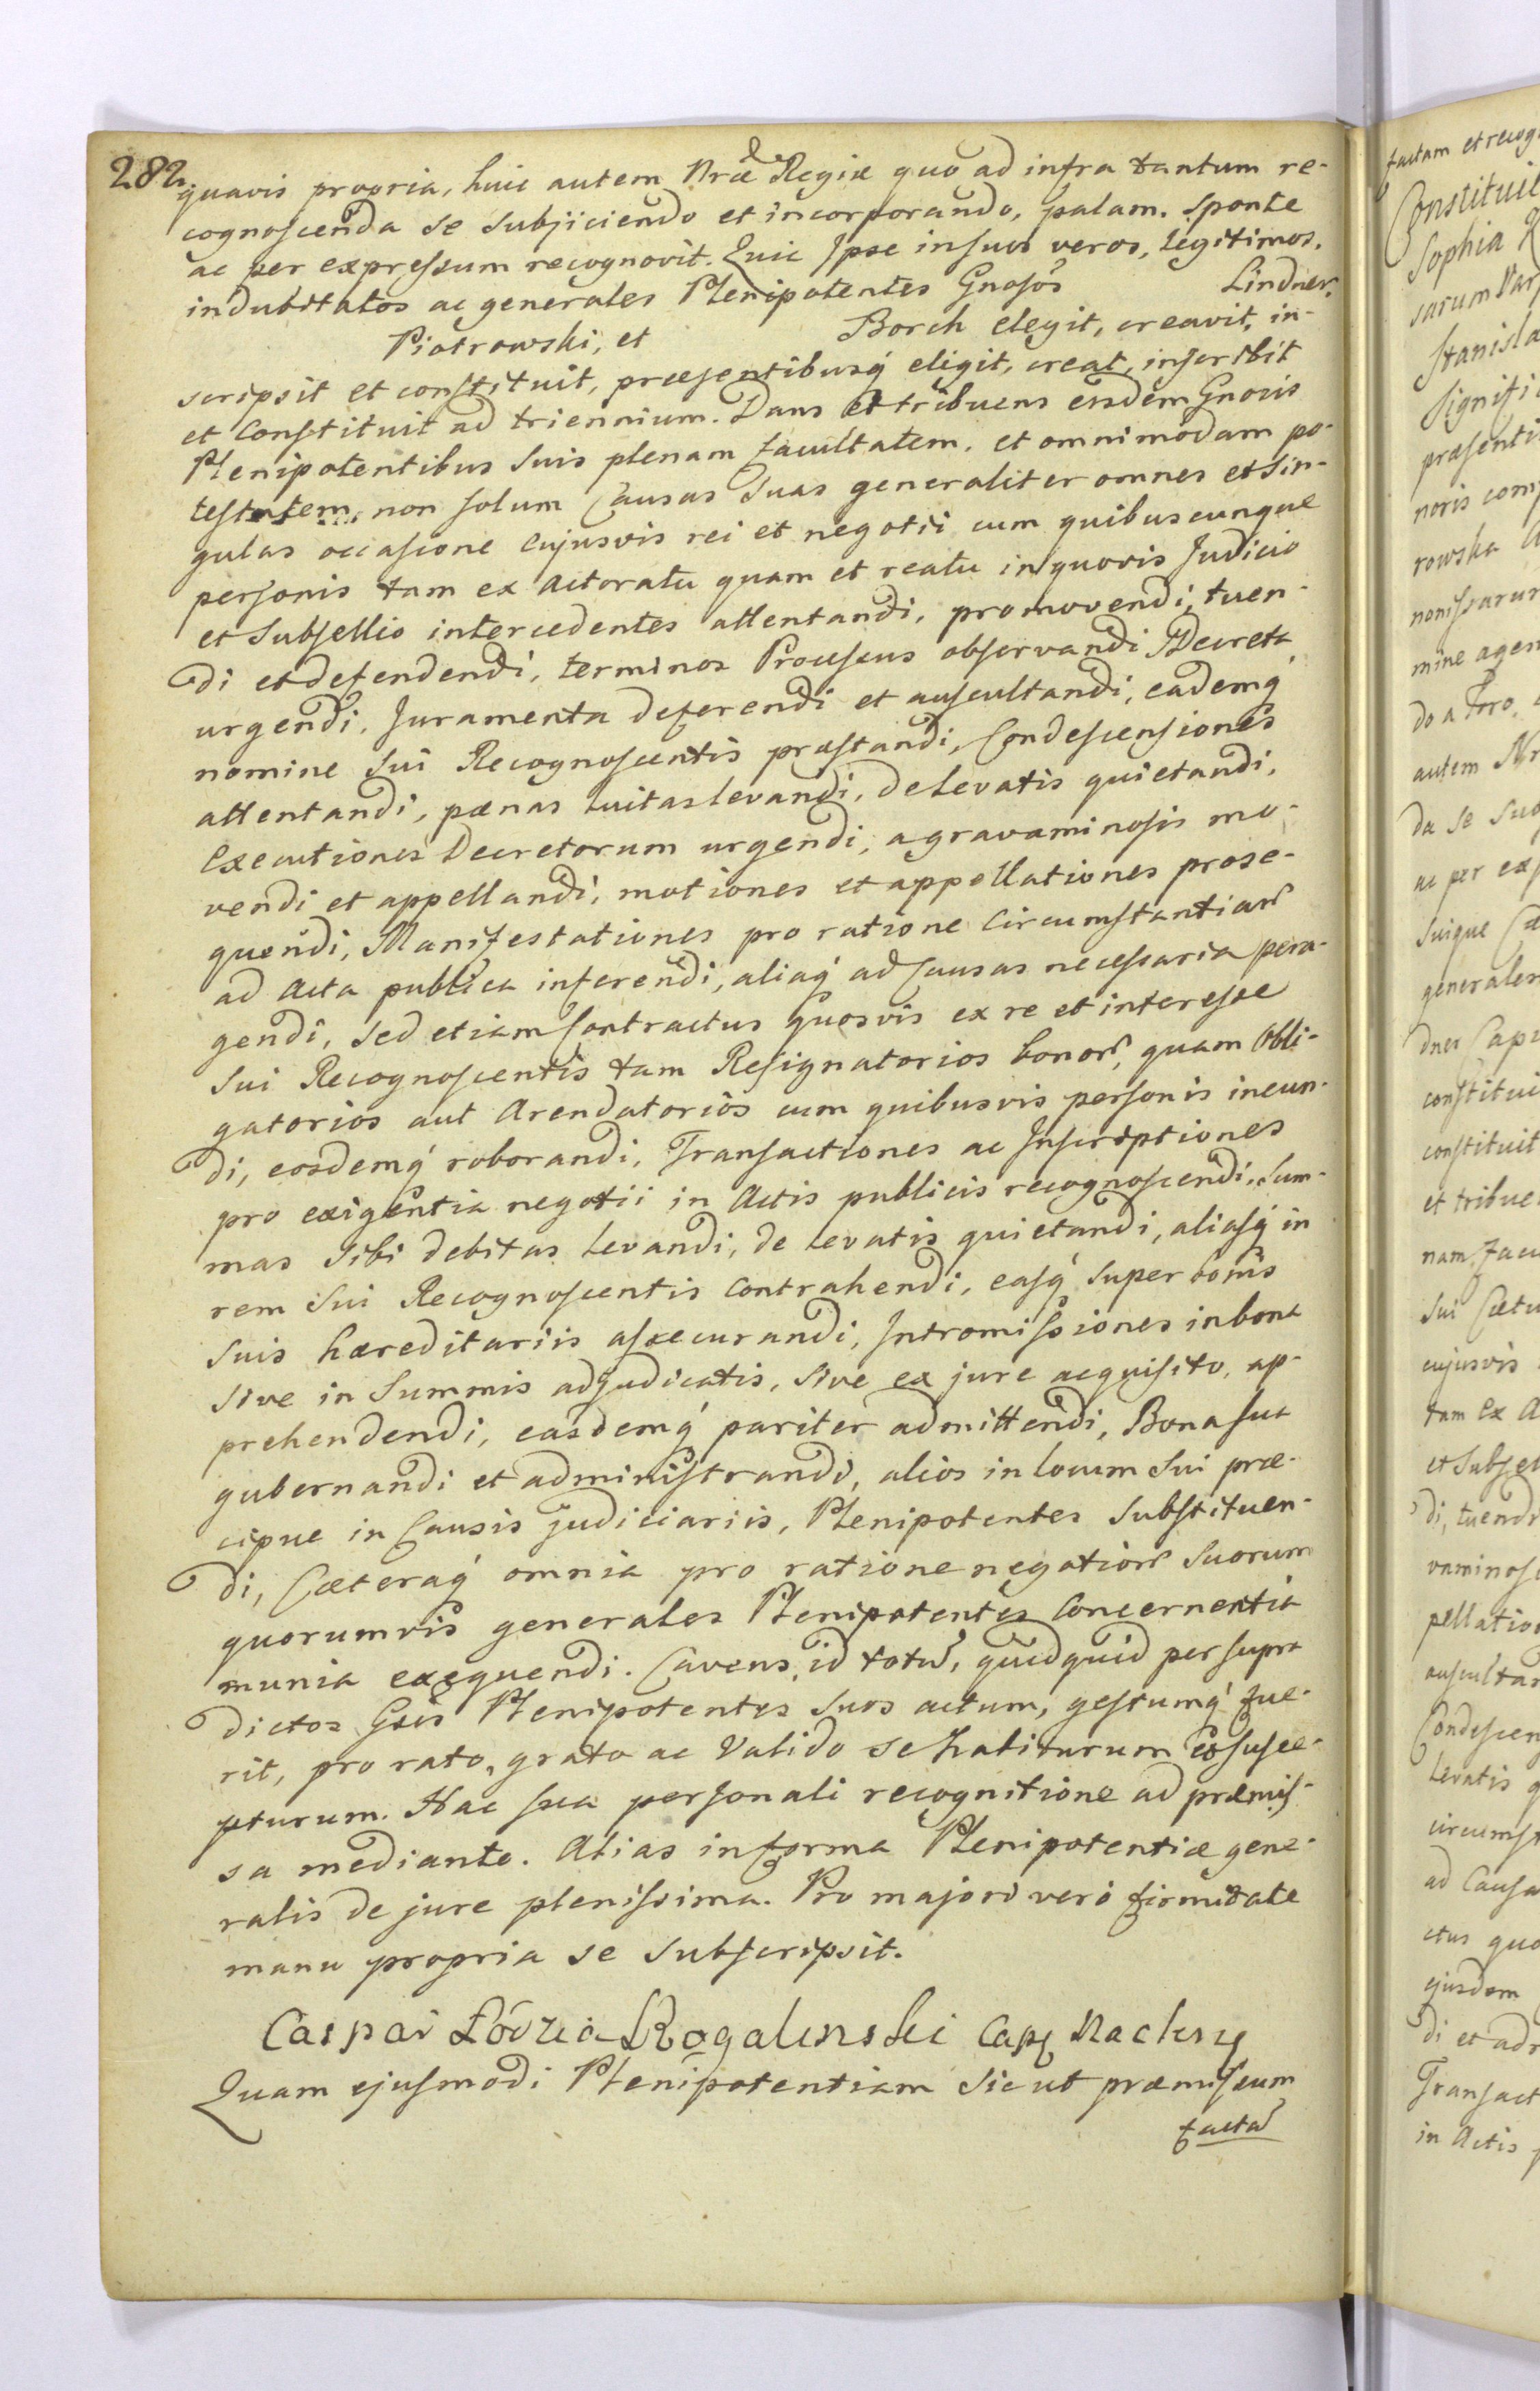 282
quavis propria, huic autem Nræ Regiæ quo ad infra tantum re-
cognoscenda se subjiciendo et incorporando, palam. sponte
ac per expressum recognovit. Quic Ipse insuos veros, legitimos.
indubitatos ac generales Plenipotentes Gnosos Lindner,
Piotrowski, et Borch elegit, creavit, in-
scripsit et constituit, præsentibusq́ eligit, creat, inscribit
et Constituit ad triennium. Dans et tribuens eisdem Gnosis
Plenipotentibus Suis plenam facultatem. et omnimodam po-
testatem, non solum Causas Suas generaliter omnes et Sin-
gulas occasione Cujusvis rei et negotii cum quibuscunque
personis tam ex Actoratu quam et reatu in quovis Judicio
et Subsellio intercedentes attentandi, promovendi, tuen-
di et defendendi, terminos Processus observandi Decreta
urgendi, Juramenta deferendi et auscultandi, eademq́
nomine Sui Recognoscentis præstandi, Condescensiones
attentandi, pænas luitas levandi, de Levatis quietandi,
Executiones Decretorum urgendi, a gravaminosis mo-
vendi et appellandi, motiones et appellationes prose-
quendi, Manifestationes pro ratione Circumstantiar
ad Acta publica inferendi, aliaq́ ad Causas necessaria pera-
gendi, Sed etiam Contractus quosvis ex re et interesse
Sui Recognoscentis tam Resignatorios bonor, quam Obli-
gatorios aut Arendatorios cum quibusvis personis ineun-
di, eosdemq́ roborandi, Transactiones ac Inscriptiones
pro exigentia negotii in Actis publicis recognoscendi, Sum-
mas Sibi debitas Levandi, de Levatis quietandi, aliasq́ in
rem Sui Recognoscentis Contrahendi, easq́ Super bonis
Suis hæreditariis assecurandi, Intromissiones in bona
Sive in Summis adjudicatis, Sive ex jure acquisito, ap-
prehendendi, easdemq́ pariter admittendi, Bona sua
gubernandi et administrandi, alios in locum Sui præ-
cipue in Causis judiciariis, Plenipotentes Substituen-
di, Cæteraq́ omnia pro ratione negotior Suorum
quorumvis generales Plenipotentes Concernentia
munia exequendi. Cavens, id totu, quidquid per supra
dictos Gsos Plenipotentes Suos actum, gestumq́ fue-
rit, pro rato, grato ac Valido se habiturum et susce-
pturum. Hac sua personali recognitione ad præmis-
sa mediante. Alias in forma Plenipotentiæ gene-
ralis de jure plenissima. Pro majori vero firmitate
manu propria se Subscripsit.
Caspar Łódzia Rogalinski Cap Nackny
Quam ejusmodi Plenipotentiam Sic ut præmissum
facta
factam et recog
Constituit
Sophia
sarum Var
Stanisla
Signifi
præsenti
noris com
rowska
nonissarum
mine agen
do a Foro,
autem Nr
da se Su
ac per ex
Suique Cæ
generales
dner Cap
constitui
constituit
et tribue
nam. facu
Sui Cætu
cujusvis
tam ex A
et Subsel
di, tuendi
vaminos
pellatio
auscultan
Condescen
Levatis q
circumst
ad Causa
ctus quo
ejusdem
di et ad
Transact
in Actis p